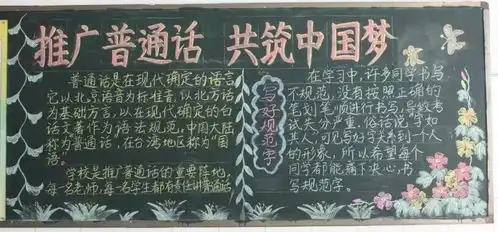 推广普通话 共筑中国梦
普通话是在现代确定的语言
它以北京语音为标准音,以北方话
为基础方言,以在现代确定的白
话文著作为语法规范。中国大陆
称为普通话,在台湾地区称为"国
语。
学校是推广普通话的重要阵地,
每一名老师,每一名学生都有责任讲普通话
写好规范字
在学习中,许多同学书写
不规范,没有按照正确的
笔划笔顺进行书写,导致考
试失分严重。俗话说字如
其人,可见写好字关系到个人
的形象,所以希望每个
同学都能痛下决心,书
写规范字。